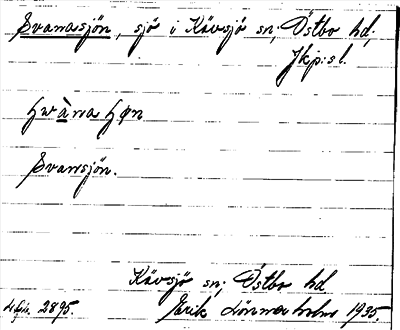 Svanasjön, sjö i Kävsjö sn; Östbo hd;
Jkp:s l.
Svansjön.
Kävsjö sn; Östbo hd
2895. Erik Lönnerholm 1935.